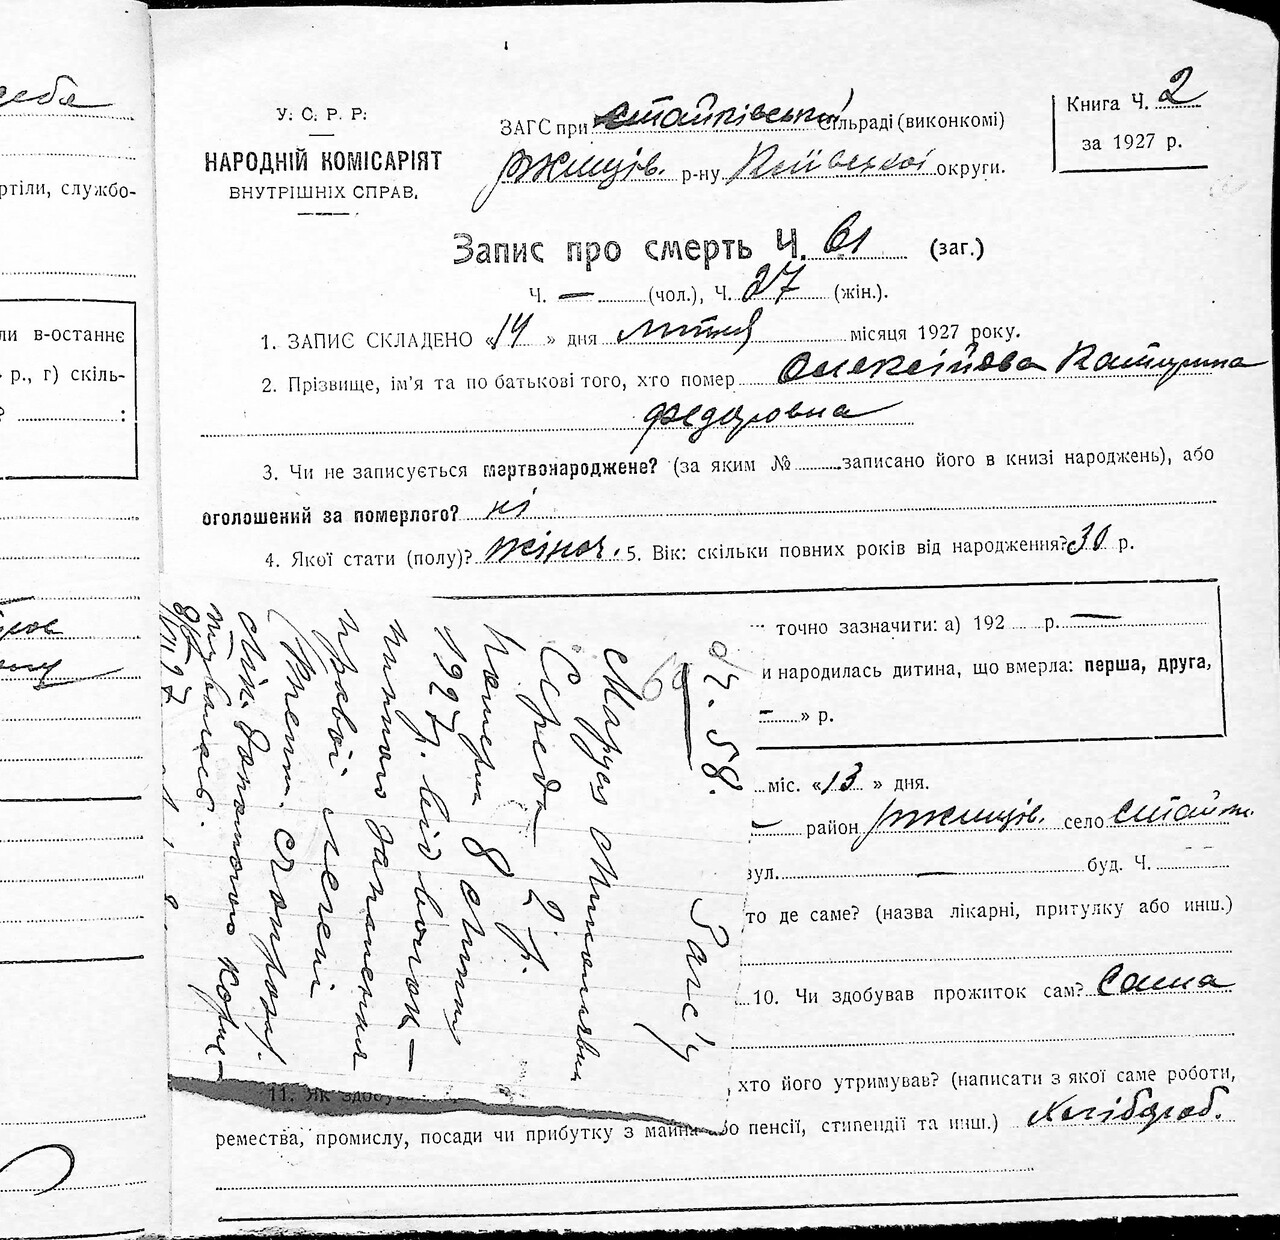 себя
ртіли, службо-
ли в-останнє
р., г) скіль-
? :
У. С. Р. Р.
НАРОДНІЙ КОМІСАРІЯТ
ВНУТРІШНІХ СПРАВ.
ЗАГС при Стайківській Сільраді (виконкомі)
Ржищів. р-ну Київської округи.
Книга Ч. 2
за 1927 р.
Запис про смерть Ч. 61 (заг.)
Ч. — (чол.), Ч. 27 (жін.).
1. ЗАПИС СКЛАДЕНО «14» дня липня місяця 1927 року.
2. Прізвище, ім'я та по батькові того, хто помер Олексійова Катерина
Федоровна
3. Чи не записується мертвонароджене? (за яким № записано його в книзі народжень), або
оголошений за померлого? ні
4. Якої стати (полу)? жіноч. 5. Вік: скільки повних років від народження? 30 р.
точно зазначити: а) 192 р. —
и народилась дитина, що вмерла: перша, друга,
— » р.
міс. «13» дня.
— район Ржищів. село Стайки
вул. — буд. Ч. --
то де саме? (назва лікарні, притулку або инш.)
10. Чи здобував прожиток сам? Сама
11. Як здобу
, хто його утримував? (написати з якої саме роботи,
ремества, промислу, посади чи прибутку з майна або пенсії, стипендії та инш.) Хлібороб.
ч. 58.
Загс'у
Маруся Миколаївна
Середа 2 р.
померла 8 липня
1927 р. від вогок—
нишого запалення
правої легені